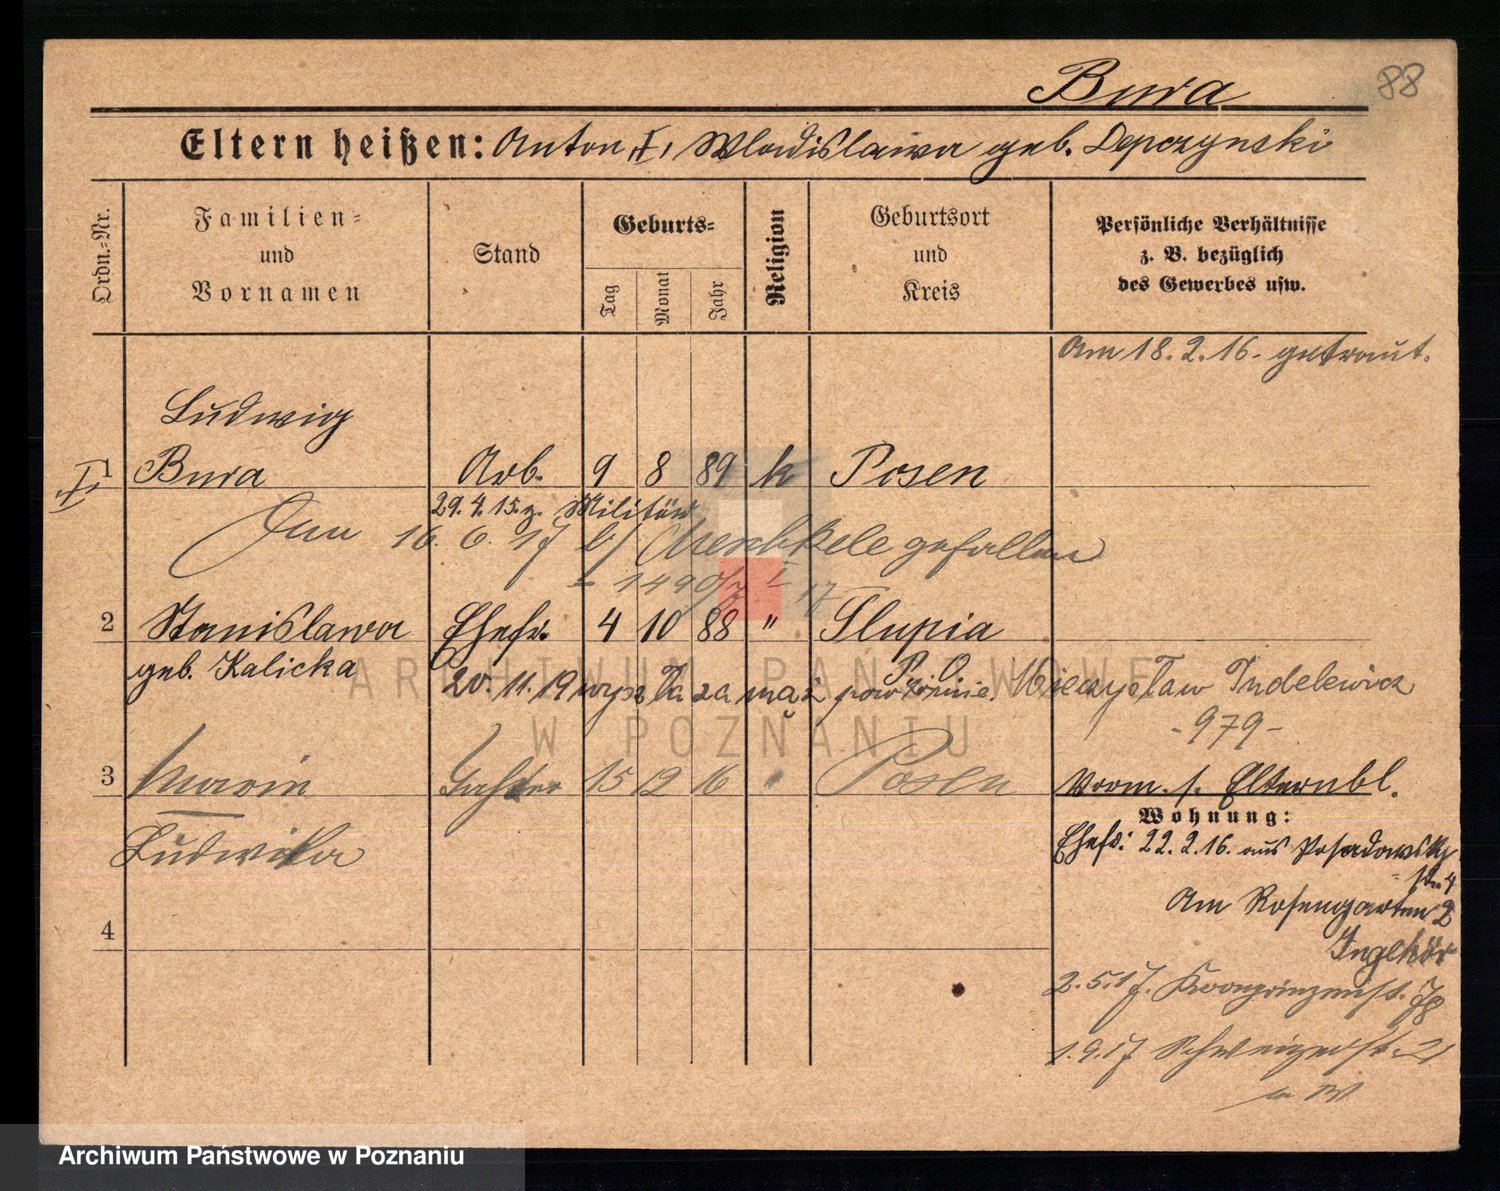 Bura 88
Eltern heißen: Anton, I, Wladislawa geb. Depczynski
Ordn.=Nr.
Familien=
und
Vornamen
Stand
Geburts=
Tag
Monat
Jahr
Religion
Geburtsort
und
Kreis
Persönliche Verhältnisse
z. B. bezüglich
des Gewerbes usw.
Am 18.2.16. getraut.
Ludwig
1 Bura Arb. 9 8 89 k Posen
29.4.15. z. Militär
16. 6. 17 gefallen
1490/ I 17
2 Stanislawa Ehefr. 4 10 88 " Slupia
geb. Kalicka P. O.
20. 11. 19 wyszła za mąż powtórnie. Mieczysław Indelewicz
-979-
3 Maria Tochter 15 12 16 " Posen
Ludwika
Vorm. s. Elternbl.
Wohnung:
Ehefr: 22.2.16. aus Posadowsky
= str. 4
Am Rosengarten 2
2.5.17. Kronprinzenst. 78
1.9.17 Schweizerstr. 21
4
ARCHIWUM PAŃSTWOWE
W POZNANIU
Archiwum Państwowe w Poznaniu